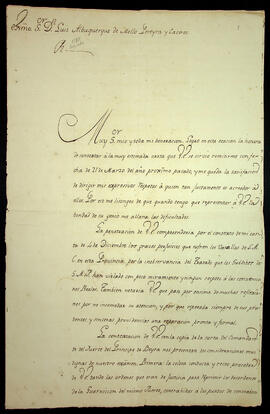 Yllmo. S.or D.n Luis Albuquerque de Mello Pereyra y Caceres
Muy S.or mio y toda mi veneracion. Logro en esta ocacion la honrra
de contestar a la muy estimada carta que V.E. se sirvio remitirme con fe-
cha de 21 de Marzo del año proximo pasado, y me queda la satisfaccion
de dirigir mis expresivos respetos à quien tan justamente es acreedor a
ellos. Por esto me lisongeo de que quando tengo que representar à la
bondad de su genio me allana las dificultades.
La penetracion de V.E. comprendera por el contexto de mi car-
ta de de Diciembre los graves perjuicios que sufren los Vasallos de S.M.
C. en esta Provincia, por la inobservancia del Tratado que los Subditos de
S.M.F. han violado con poco miramiento y ningun respeto à los convenios
Reales. Tambien notaria V.E. por mi que omito muchas reflexio-
nes por no incomodar su atencion, y por que esperaba siempre de sus pru-
dentes, y rectas providencias una reparacion pronta y formal.
La contestacion de V.E. con la copia de la carta del Comandan-
te del Fuerte del Principe de Beyra nos presentan dos consideraciones muy
dignas de nuestro examen. Primera: la solida conducta y recto proceder
de V.E. dando las ordenes que eran de Justicia para reprimir los desordenes
de la Guarnicion del mismo Fuerte, contrarrestar a los puntos de